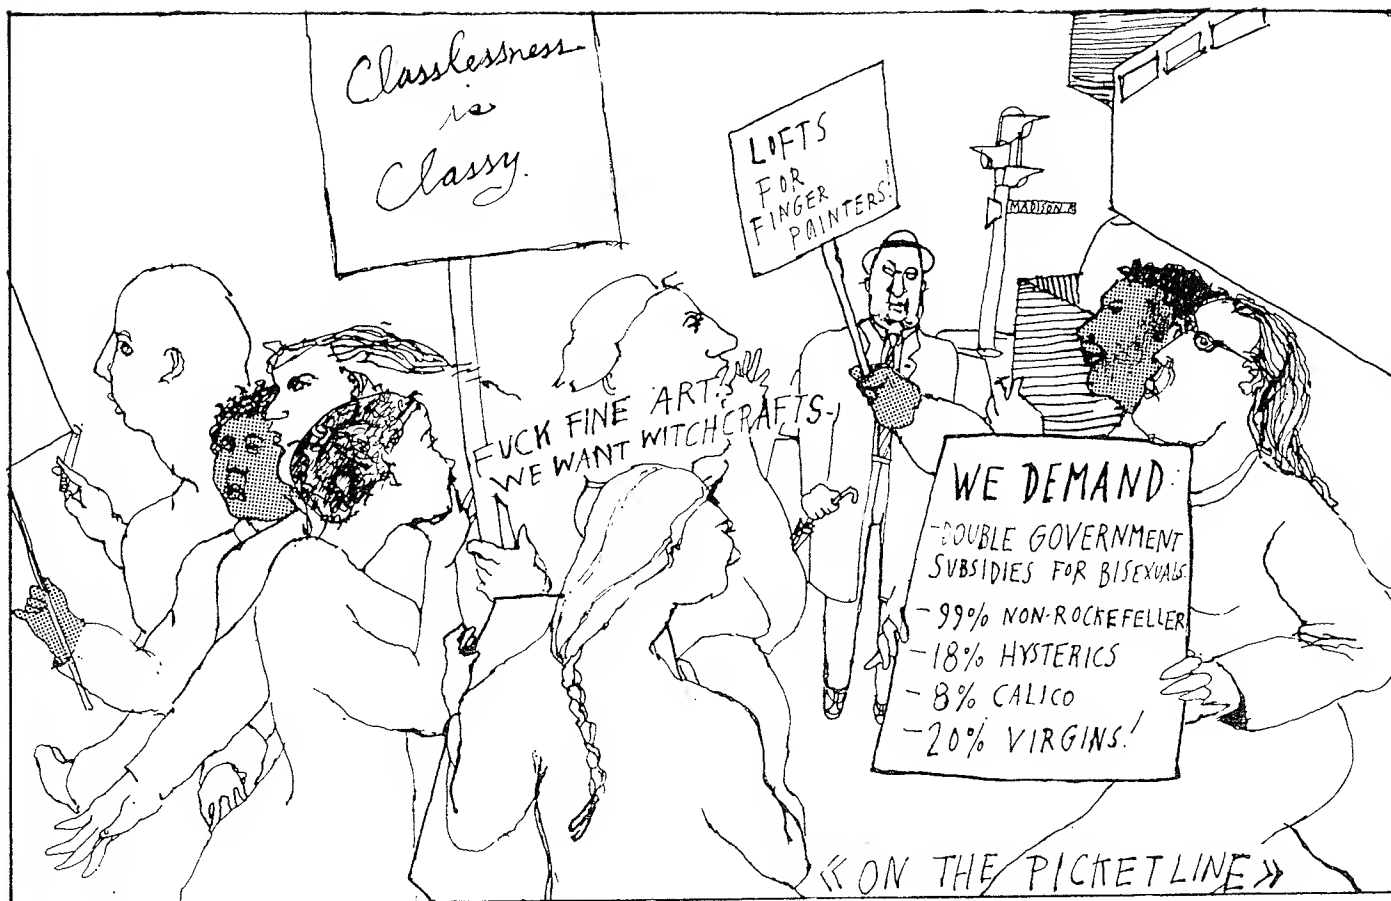 Classlessness
is
Classy.
LOFTS
FOR
FINGER
PAINTERS!
MADISON A
FUCK FINE ART!
WE WANT WITCHCRAFTS-!
WE DEMAND:
-DOUBLE GOVERNMENT
SUBSIDIES FOR BISEXUALS.
-99% NON-ROCKEFELLER
-18% HYSTERICS
-8% CALICO
-20% VIRGINS!
«ON THE PICKETLINE»